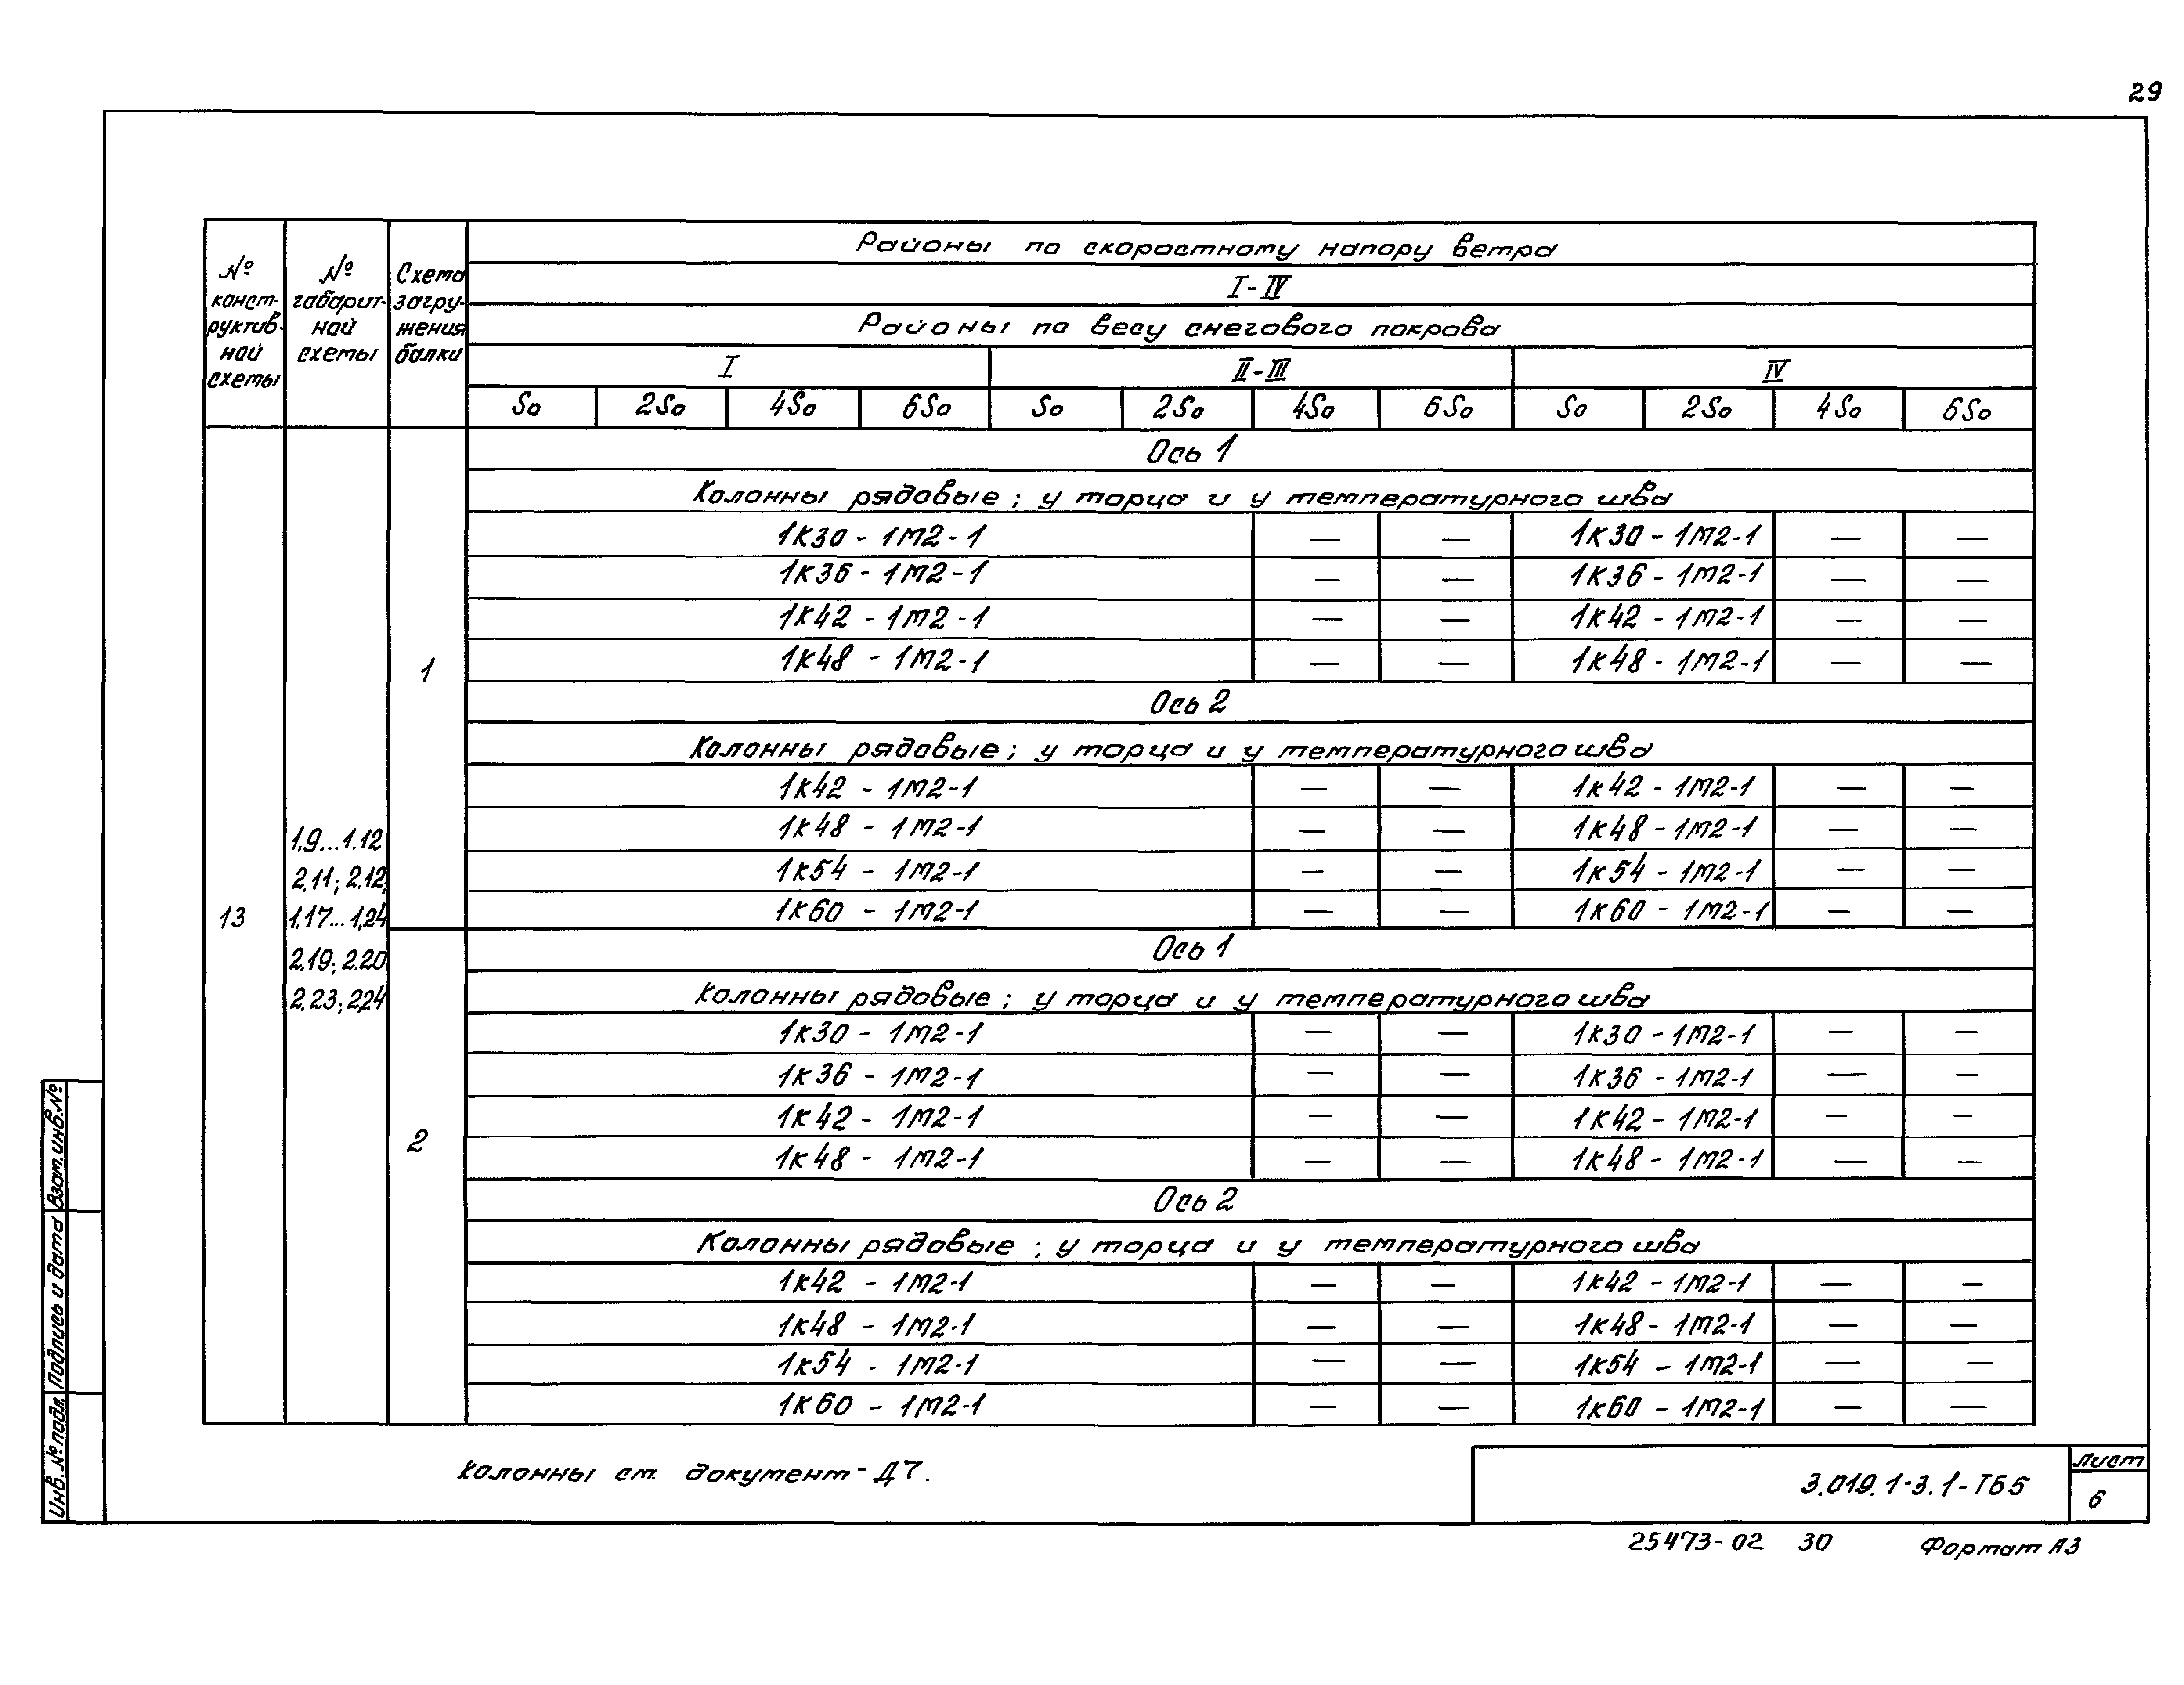 29
№ конст- руктив- ной схемы
№ габарит- ной схемы
Схема загру- жения балки
Районы по скоростному напору ветра
I-IV
Районы по весу снегового покрова
I II-III IV
So 2So 4So 6So So 2So 4So 6So So 2So 4So 6So
13
1.9...1.12
2.11; 2.12;
1.17...1.24
2.19; 2.20
2.23; 2.24
1
Ось 1
Колонны рядовые; у торца и у температурного шва
1К30 - 1М2-1 — — 1К30 - 1М2-1 — —
1К36 - 1М2-1 — — 1К36 - 1М2-1 — —
1К42 - 1М2-1 — — 1К42 - 1М2-1 — —
1К48 - 1М2-1 — — 1К48 - 1М2-1 — —
Ось 2
Колонны рядовые; у торца и у температурного шва
1К42 - 1М2-1 — — 1К42 - 1М2-1 — —
1К48 - 1М2-1 — — 1К48 - 1М2-1 — —
1К54 - 1М2-1 — — 1К54 - 1М2-1 — —
1К60 - 1М2-1 — — 1К60 - 1М2-1 — —
2
Ось 1
Колонны рядовые; у торца и у температурного шва
1К30 - 1М2-1 — — 1К30 - 1М2-1 — —
1К36 - 1М2-1 — — 1К36 - 1М2-1 — —
1К42 - 1М2-1 — — 1К42 - 1М2-1 — —
1К48 - 1М2-1 — — 1К48 - 1М2-1 — —
Ось 2
Колонны рядовые; у торца и у температурного шва
1К42 - 1М2-1 — — 1К42 - 1М2-1 — —
1К48 - 1М2-1 — — 1К48 - 1М2-1 — —
1К54 - 1М2-1 — — 1К54 - 1М2-1 — —
1К60 - 1М2-1 — — 1К60 - 1М2-1 — —
Колонны см. документ-Д7.
3.019.1-3.1-ТБ5
Лист
6
25473-02 30 Формат А3
Взам.инв.№
Подпись и дата
Инв.№подл.